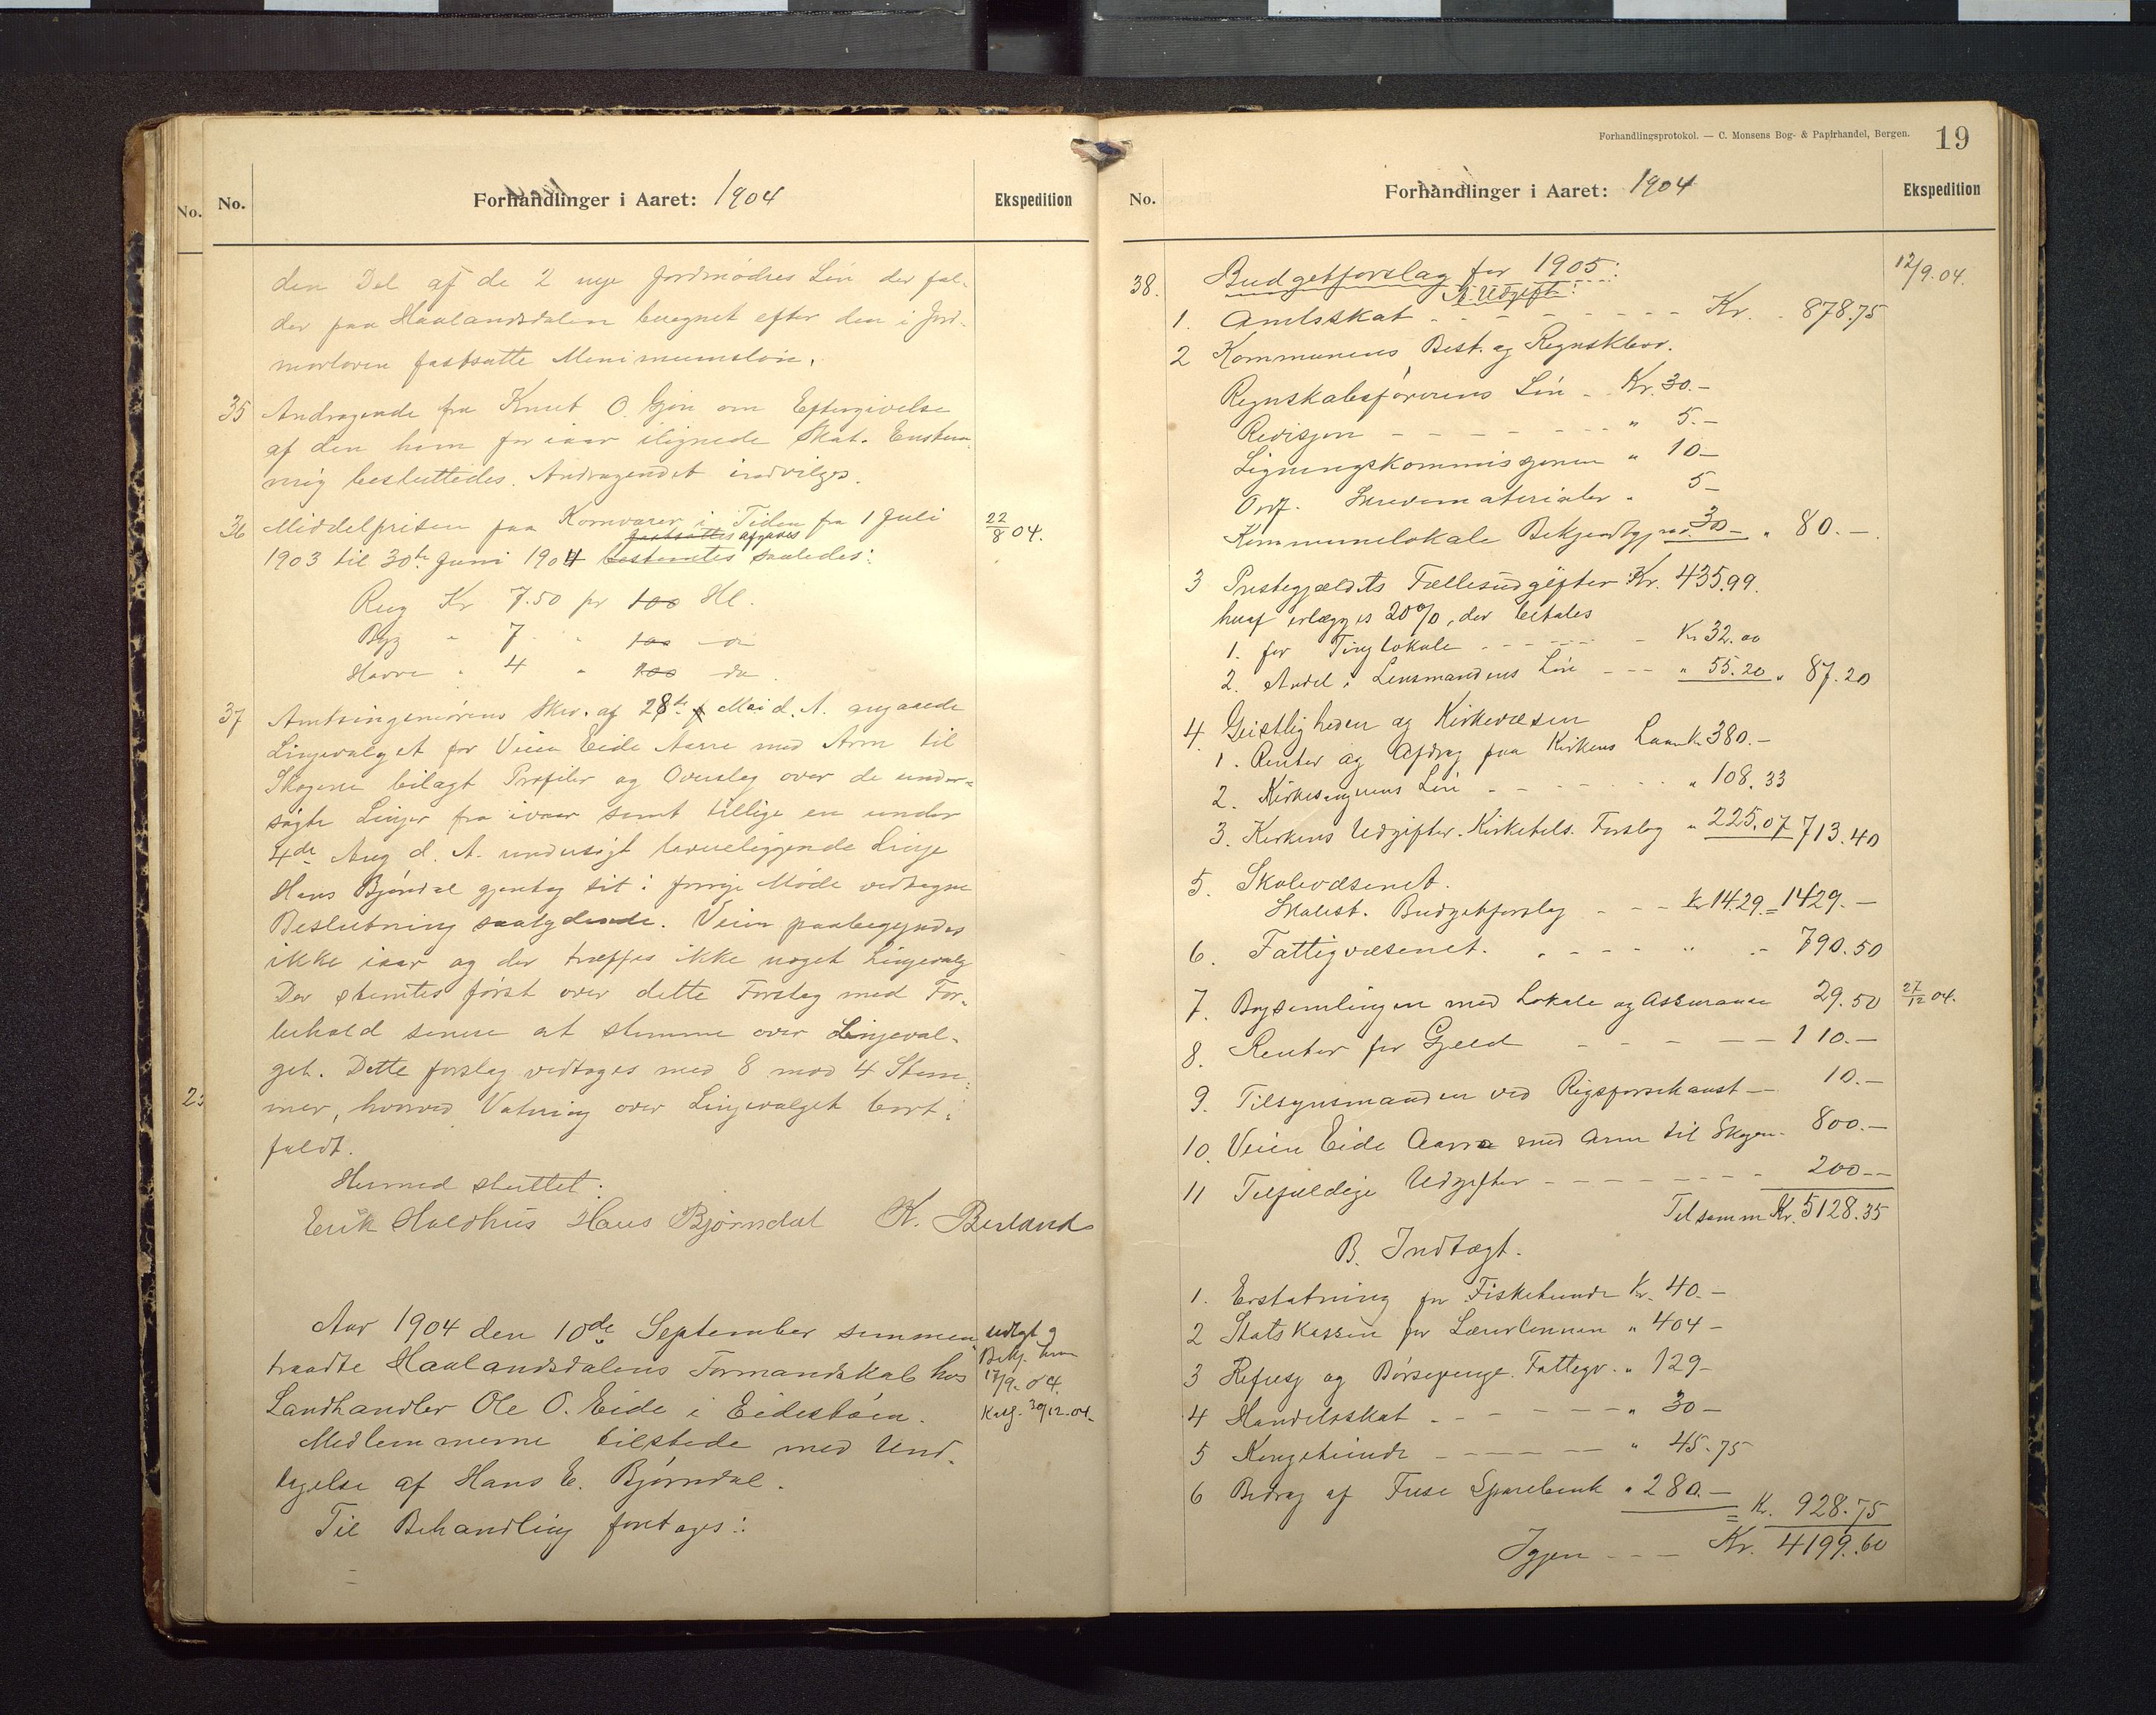 No.
No.
Forhandlinger i Aaret: 1904
Ekspedition
den Del af de 2 nye Jordmødres Løn der fal-
der paa Haalandsdalen beregnet efter den i Jord-
morloven fastsatte Menimumsløn.
35 Andragende fra Knut O. Gjøn om Eftergivelse
af den ham for iaar ilignede Skat. Enstem-
mig besluttedes. Andragendet indvilges.
36 Middelprisen paa Kornvarer i Tiden fra 1 Juli
22/8 04.
fastsattes afgaves
1903 til 30te Juni 1904 bestemtes saaledes:
Rug Kr 7.50 pr 100 Hl.
Byg " 7 " 100 do
Havre " 4 " 100 do.
37 Amtsingeniørens Skr. af 28de Mai d. A. angaaende
Linjevalget for Veien Eide Aarre med Arm til
Skogen bilagt Profiler og Overslag over de under-
søgte Linjer fra ivaar samt tillige en under
4de Aug d. A. undersøgt laveneliggende Linje
Hans Bjørndal gjentog sit i forrige Møde vedtagne
Beslutning saalydende. Veien paabegyndes
ikke iaar og der træffes ikke noget Linjevalg
Der stemtes først over dette Forslag med For-
behold senere at stemme over Linjeval-
get. Dette forslag vedtoges med 8 mod 4 Stem-
23
mer, hvorved Votering over Linjevalget bort-
faldt.
Hermed sluttet:
Erik Holdhus Hans Bjørndal K. Berland
Aar 1904 den 10de September sammen-
traadte Haalandsdalens Formandskab hos
Landhandler Ole O. Eide i Eidestøen.
Medlemmerne tilstede med Und-
tagelse af Hans E. Bjørndal.
Til Behandling foretages:
Udlagt
Bekj.
17/9. 04.
30/12-04-
Forhandlingsprotokol. — C. Monsens Bog- & Papirhandel, Bergen.
19
No.
Forhandlinger i Aaret: 1904
Ekspedition
38. Budgetforslag for 1905:
12/9.04.
A. Udgift:
1. Amtsskat - - - Kr. 878.75
2 Kommunens Best. og Regnskbv.
Regnskabsførerens Løn - Kr. 30.-
Revisjon - - - " 5.-
Ligningskommissjonen " 10-
Ordf. Skrivematerialer " 5-
Kommunelokale Bekjendtgj. 30- " 80.-
3 Prestegjældets Fællesudgifter Kr. 435.99.
hvaf erlægges 20%, der betales
1. for Tinglokale - - - Kr 32.00
2. Andel i Lensmandens Løn - - " 55.20 " 87.20
4. Geistligheden og Kirkevæsen
1. Renter og Afdrag paa Kirkens Laan Kr 380.-
2. Kirkesangerens Løn - - - " 108.33
3. Kirkens Udgifter. Kirketils. Forslag " 225.07 713.40
5. Skolevæsenet.
Skolest. Budgetforslag - - - Kr 1429.= 1429.-
6. Fattigvæsenet. - - - " - 790.50
7. Bogsamlingen med Lokale og Assurance 29.50
27/12 04.
8. Renter for Gjeld - - - 110.-
9. Tilsynsmanden ved Rigsforsikanst - 10.-
10. Veien Eide Aarre med Arm til Skogen. 800.-
11 Tilfældige Udgifter - - - 200--
Tilsamm Kr. 5128.35
B. Indtægt.
1. Erstatning for Fisketiende Kr. 40.-
2 Statskassen for Lærerlønnen " 404-
3 Refusj og Børsepenge. Fattigv. " 129-
4 Handelsskat - - - " 30-
5 Kongetiende - - - " 45.75
6 Bidrag af Fuse Sparebank " 280.-
= K. 928.75
Igjen - - - Kr. 4199.60